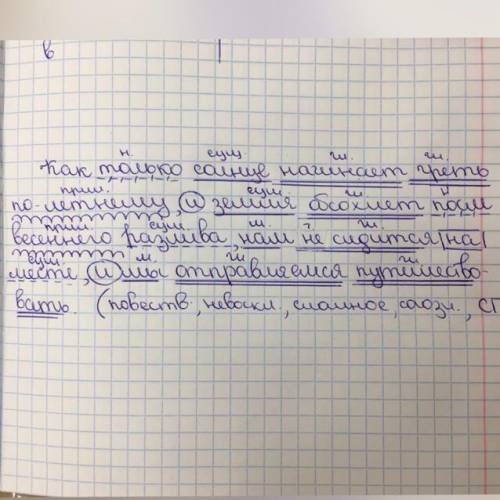 в
н. сущ. гл. гл.
Как только солнце начинает греть
прил. сущ. гл. н
по-летнему, и земля обсохнет посл
прил. сущ. м. ч. гл.
весеннего разлива, нам не сидится на
сущ. м. гл. гл.
месте, и мы отправляемся путешество-
вать. (повеств, невоскл, сложное, союзн., СП